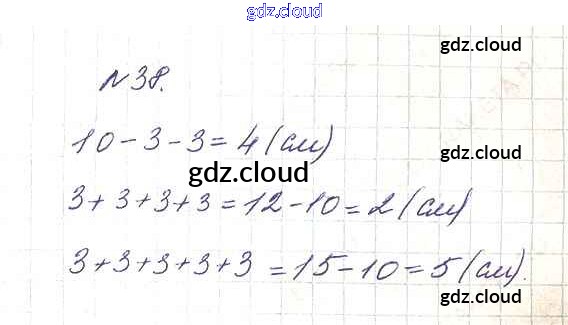 gdz.cloud
gdz.cloud
№38.
10-3-3=4(см)
gdz.cloud
gdz.cloud
3+3+3+3=12-10=2(см)
gdz.cloud
3+3+3+3+3=15-10=5(см).
gdz.cloud